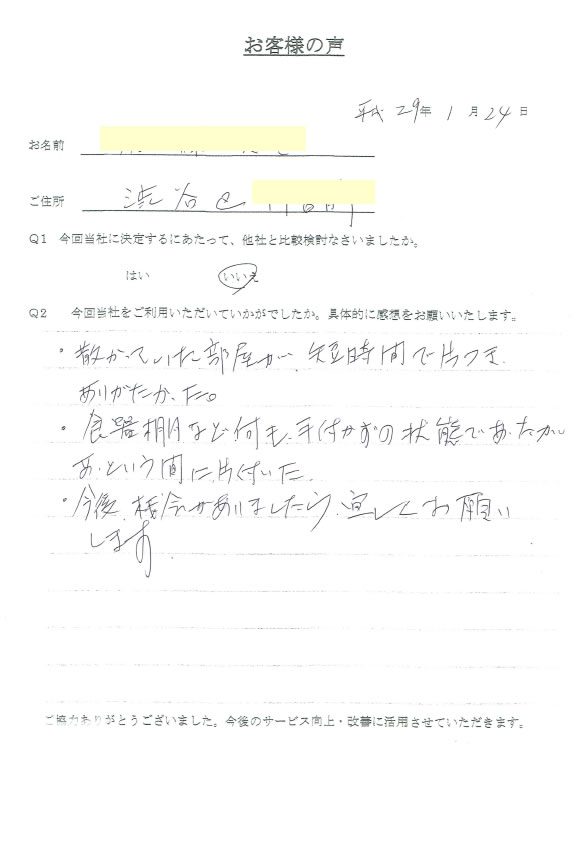 お客様の声
平成29年1月24日
お名前
ご住所 渋谷区
Q1 今回当社に決定するにあたって、他社と比較検討なさいましたか。
はい いいえ
Q2 今回当社をご利用いただいていかがでしたか。具体的に感想をお願いいたします。
・散かっていた部屋が、短時間で片つき
ありがたかった。
・食器棚など何も、手付かずの状態であったが
あっという間に片付いた。
・今後、機会がありましたら、宜しくお願い
します
ご協力ありがとうございました。今後のサービス向上・改善に活用させていただきます。